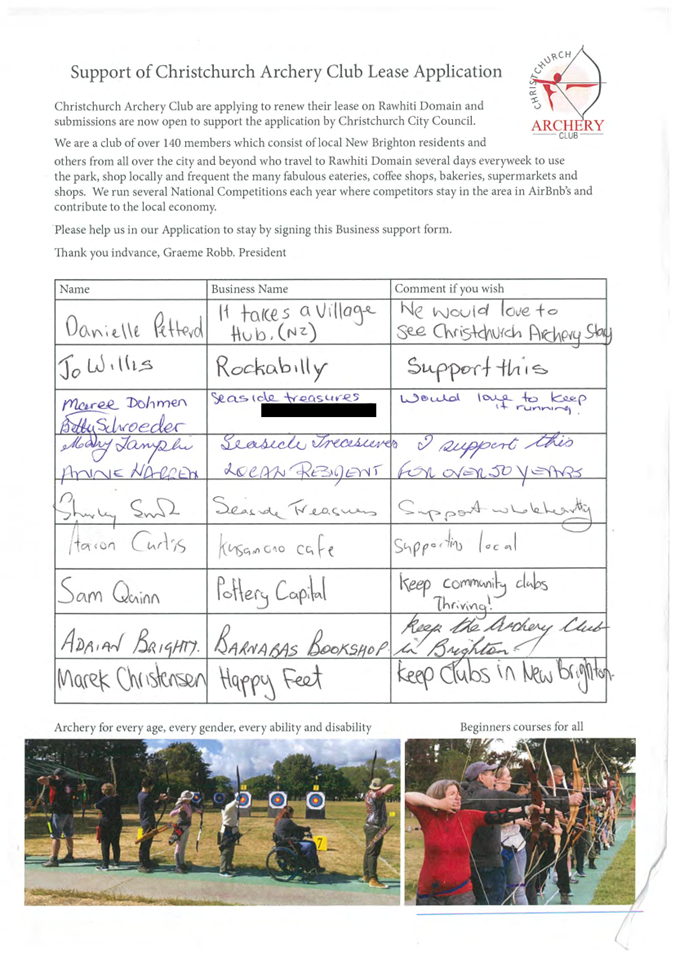 Support of Christchurch Archery Club Lease Application
CHRISTCHURCH
ARCHERY
CLUB
Christchurch Archery Club are applying to renew their lease on Rawhiti Domain and
submissions are now open to support the application by Christchurch City Council.
We are a club of over 140 members which consist of local New Brighton residents and
others from all over the city and beyond who travel to Rawhiti Domain several days everyweek to use
the park, shop locally and frequent the many fabulous eateries, coffee shops, bakeries, supermarkets and
shops. We run several National Competitions each year where competitors stay in the area in AirBnb's and
contribute to the local economy.
Please help us in our Application to stay by signing this Business support form.
Thank you indvance, Graeme Robb. President
Name Business Name Comment if you wish
Danielle It takes a Village We would love to
Hub. (NZ) see Christchurch Archery Stay
Jo Willis Rockabilly Support this
Maree Dohmen Seaside treasures Would love to keep
it running.
Betty Schroeder
Mary Seaside Treasures I support this
ANNE LOCAL RESIDENT FOR OVER 50 YEARS
Shirley Seaside Treasures Support wholeheartly
Aaron Curtis cafe Supporting local
Sam Quinn Pottery Capital Keep community clubs
Thriving!
ADRIAN BRIGHTY. BARNABAS BOOKSHOP. keep the Archery Club
in Brighton.
Marek Christensen Happy Feet keep clubs in New Brighton.
Archery for every age, every gender, every ability and disability
Beginners courses for all
7